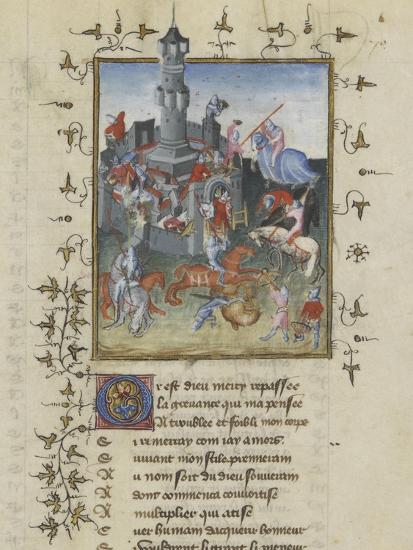 Or est dieu mercy repassee
La grevance qui ma pensee
A troublee et foibli mon corps
Si remerray com iay amors
Suivant mon stile premerain
Au non soit du dieu souverain
Dont commenca couvoitise
A multiplier qui atise
Cuer humain dacquerir honneur